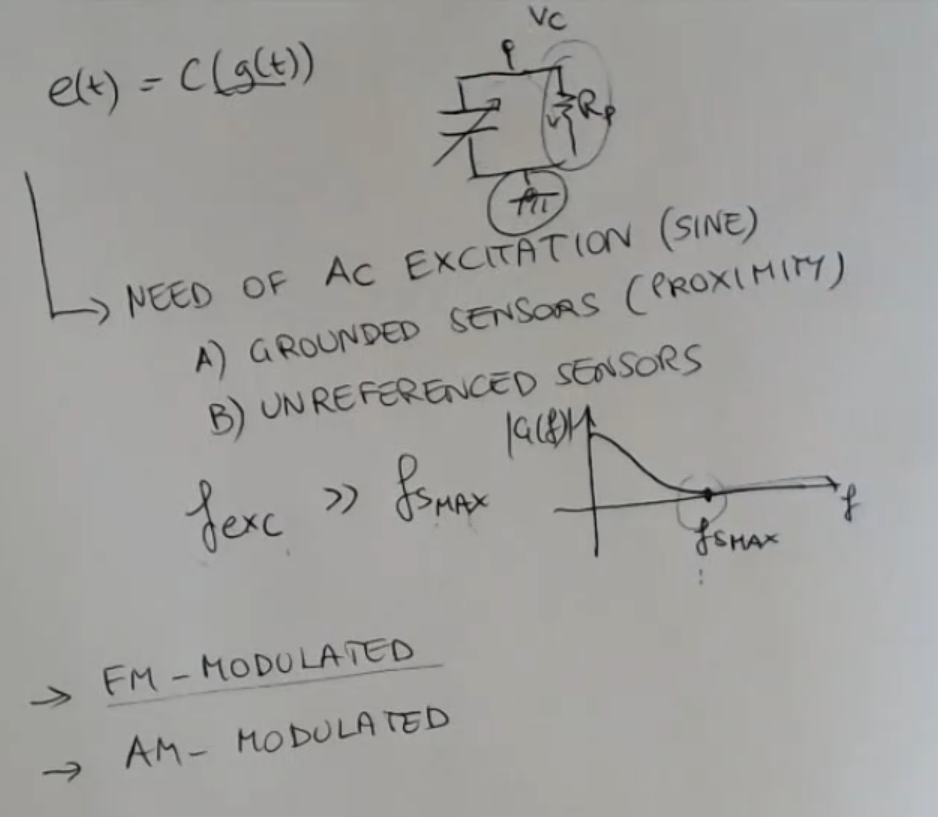 VC
e(t) = C(g(t))
Rp
→ NEED OF AC EXCITATION (SINE)
A) GROUNDED SENSORS (PROXIMITY)
B) UNREFERENCED SENSORS
|G(f)|
fexc >> fSMAX
f
fSMAX
→ FM - MODULATED
→ AM - MODULATED